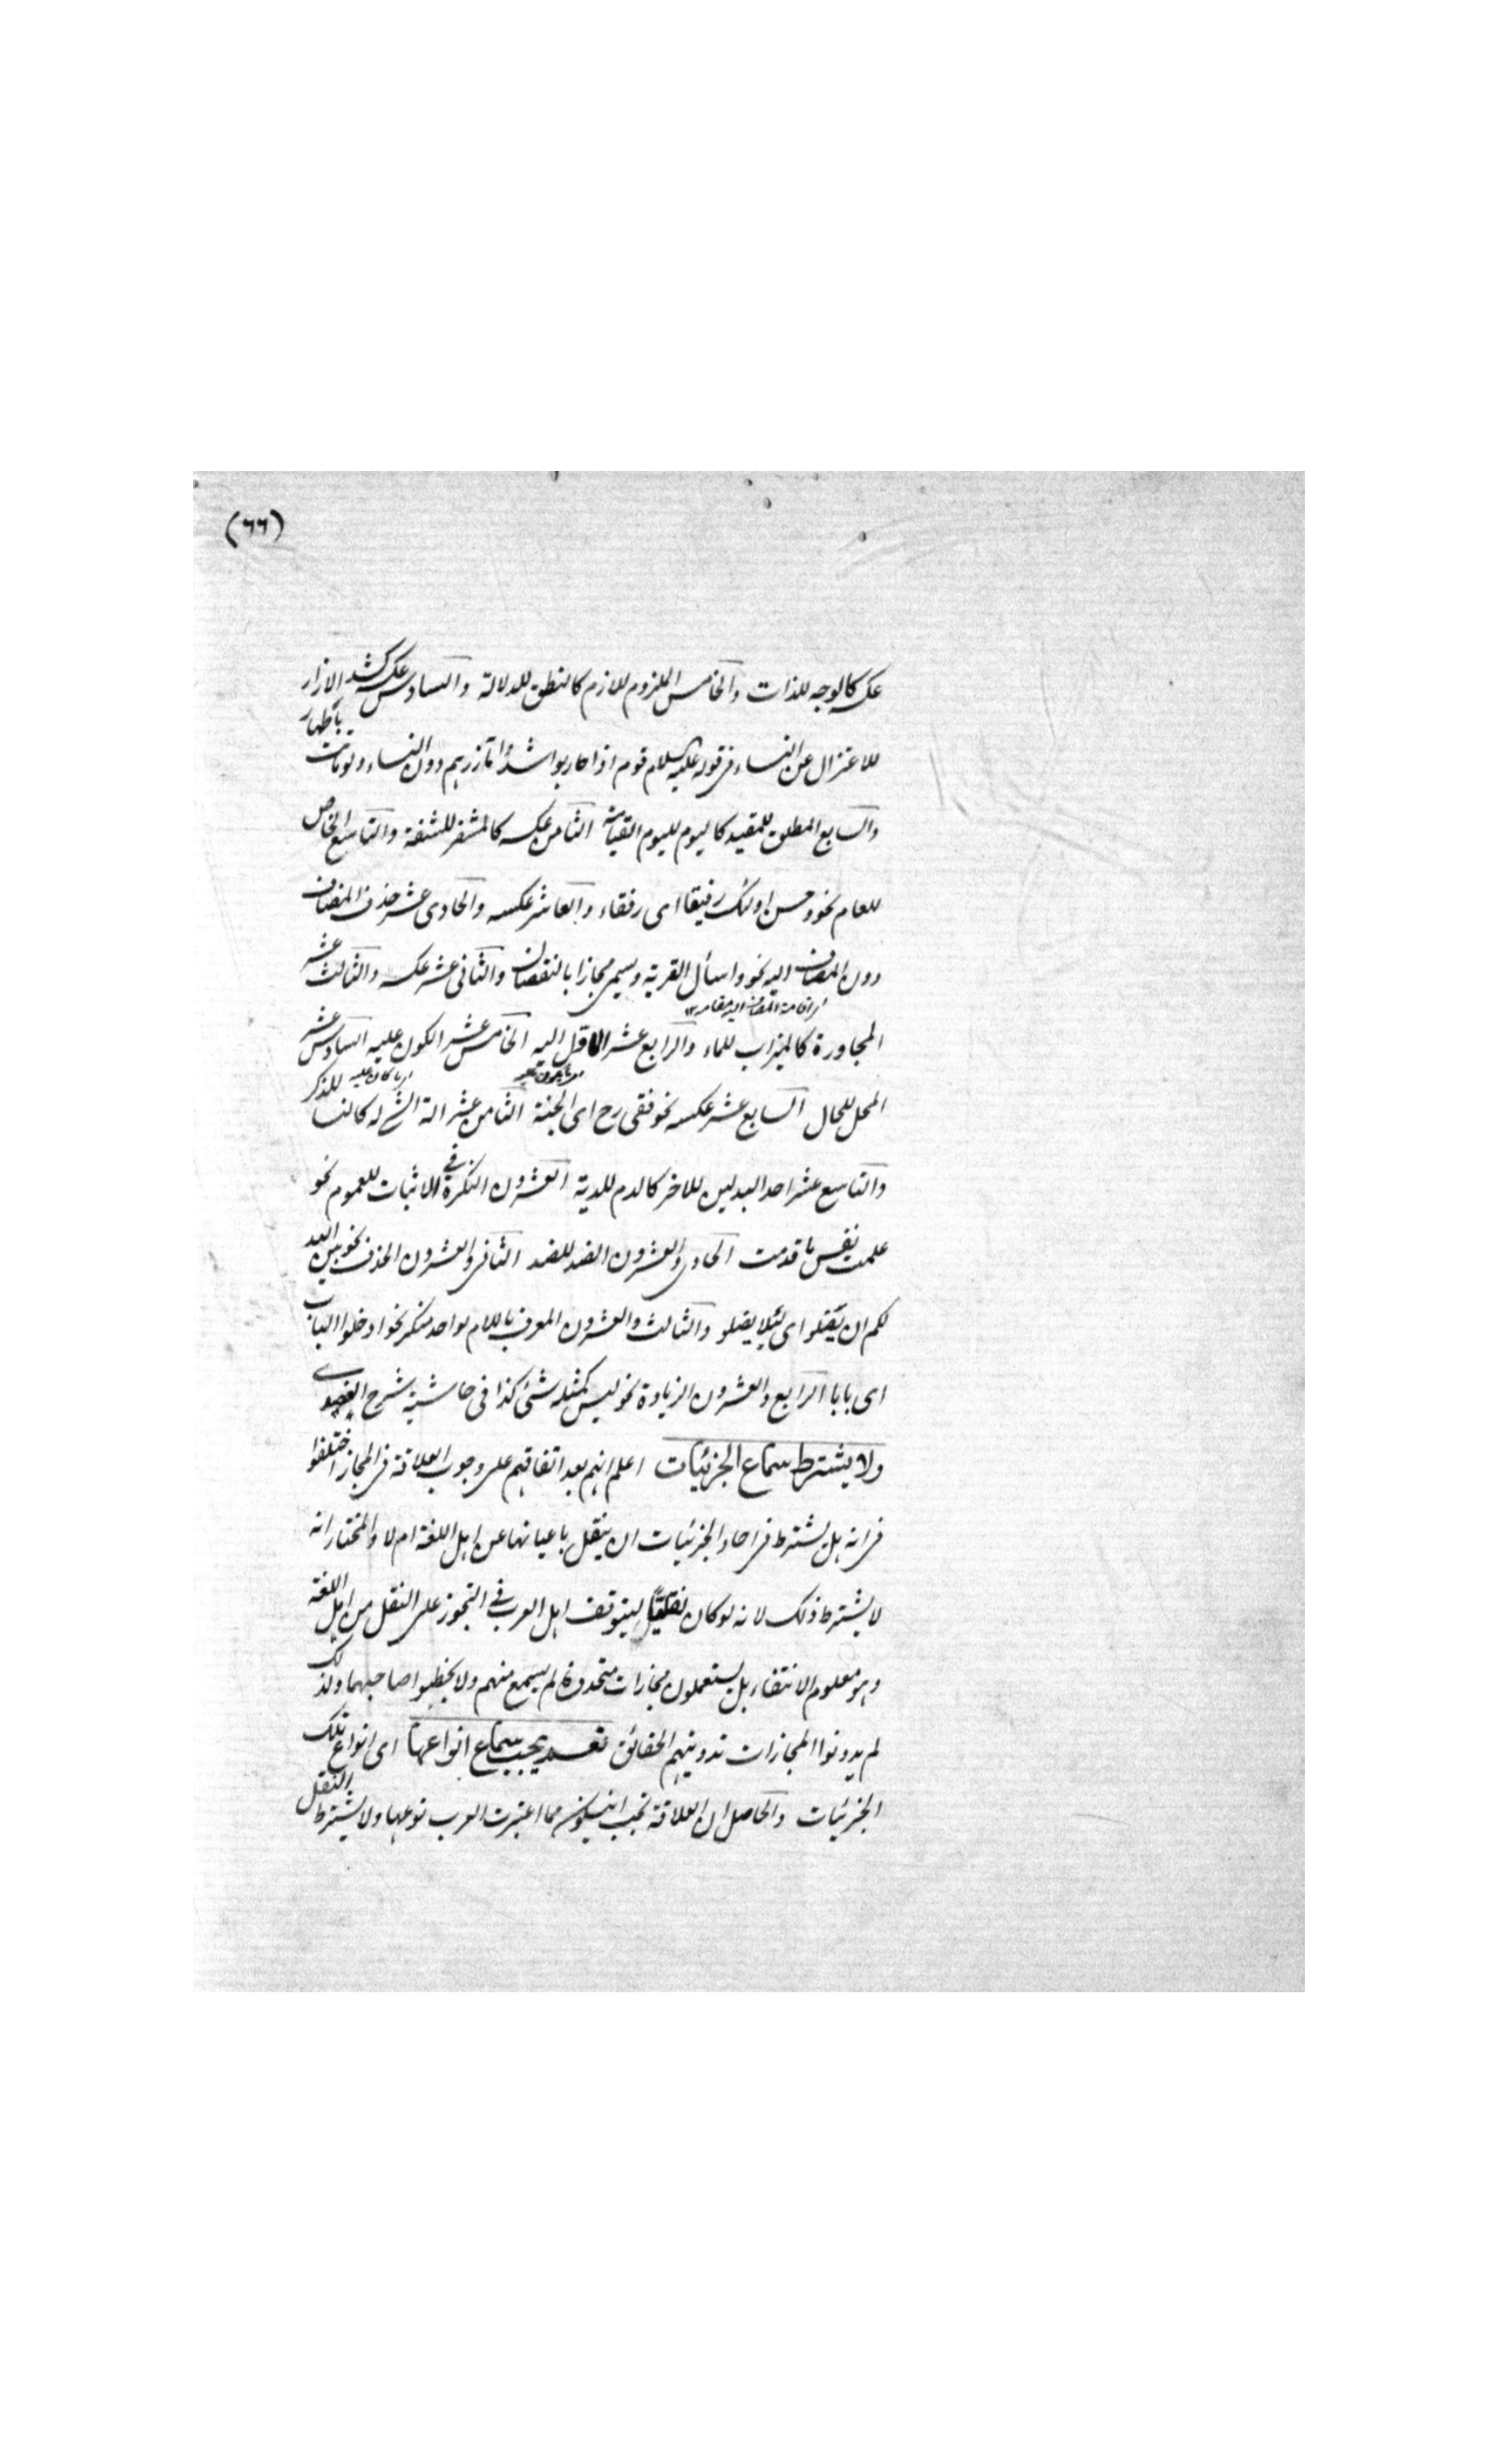 (٦٦)
عكسه كالوجه للذات والخامس اللزوم للازم كالنطق للدلالة والسادس عكسه كشد الازار
للاعتزال عن النساء فى قوله عليه السلام قوم اذا حاربوا شدوا مآزرهم دون النساء ولو باتت باطهار
والسابع المطلق للمقيد كاليوم لليوم القيامة الثامن عكسه كالمشفر للشفة والتاسع الخاص
للعام نحو وحسن اولئك رفيقا اى رفقاء والعاشر عكسه والحادى عشر حذف المضاف
دون المضاف اليه نحو واسأل القرية ويسمى مجازا بالنقصان والثانى عشر عكسه والثالث عشر
اى اقامة المضاف اليه مقامه ١٢
المجاورة كالميزاب للماء والرابع عشر الاول اليه الخامس عشر الكون عليه السادس عشر
اى ما كان عليه
المحل للحال السابع عشر عكسه نحو ففى رح اى الجنة الثامن عشر الة الشئ له كاللسان للذكر
والتاسع عشر احد البدلين للاخر كالدم للدية العشرون النكرة فى الاثبات للعموم نحو
علمت نفس ما قدمت الحادى والعشرون الضد للضد الثانى والعشرون الحذف نحو يبين الله
لكم ان تضلوا اى لئلا يضلو والثالث والعشرون المعرف باللام لواحد منكر نحو ادخلوا الباب
اى بابا الرابع والعشرون الزيادة نحو ليس كمثله شئ كذا فى حاشية شرح العضدى
ولا يشترط سماع الجزئيات اعلم انهم بعد اتفاقهم على وجوب العلاقة فى المجاز اختلفوا
فى انه هل يشترط فى احاد الجزئيات ان ينقل باعيانها عن اهل اللغة ام لا والمختار انه
لا يشترط ذلك لانه لو كان نقليا ليتوقف اهل العرب فى التجوز على النقل من اهل اللغة
وهو معلوم الانتفاء بل يستعملون مجازات متجددة لم يسمع منهم ولا يخطئوا صاحبهما ولذلك
لم يدونوا المجازات تدوينهم الحقائق نعم يجب سماع انواعها اى انواع تلك
الجزئيات والحاصل ان العلاقة يجب ان يكون مما اعتبرت العرب نوعها ولا يشترط النقل